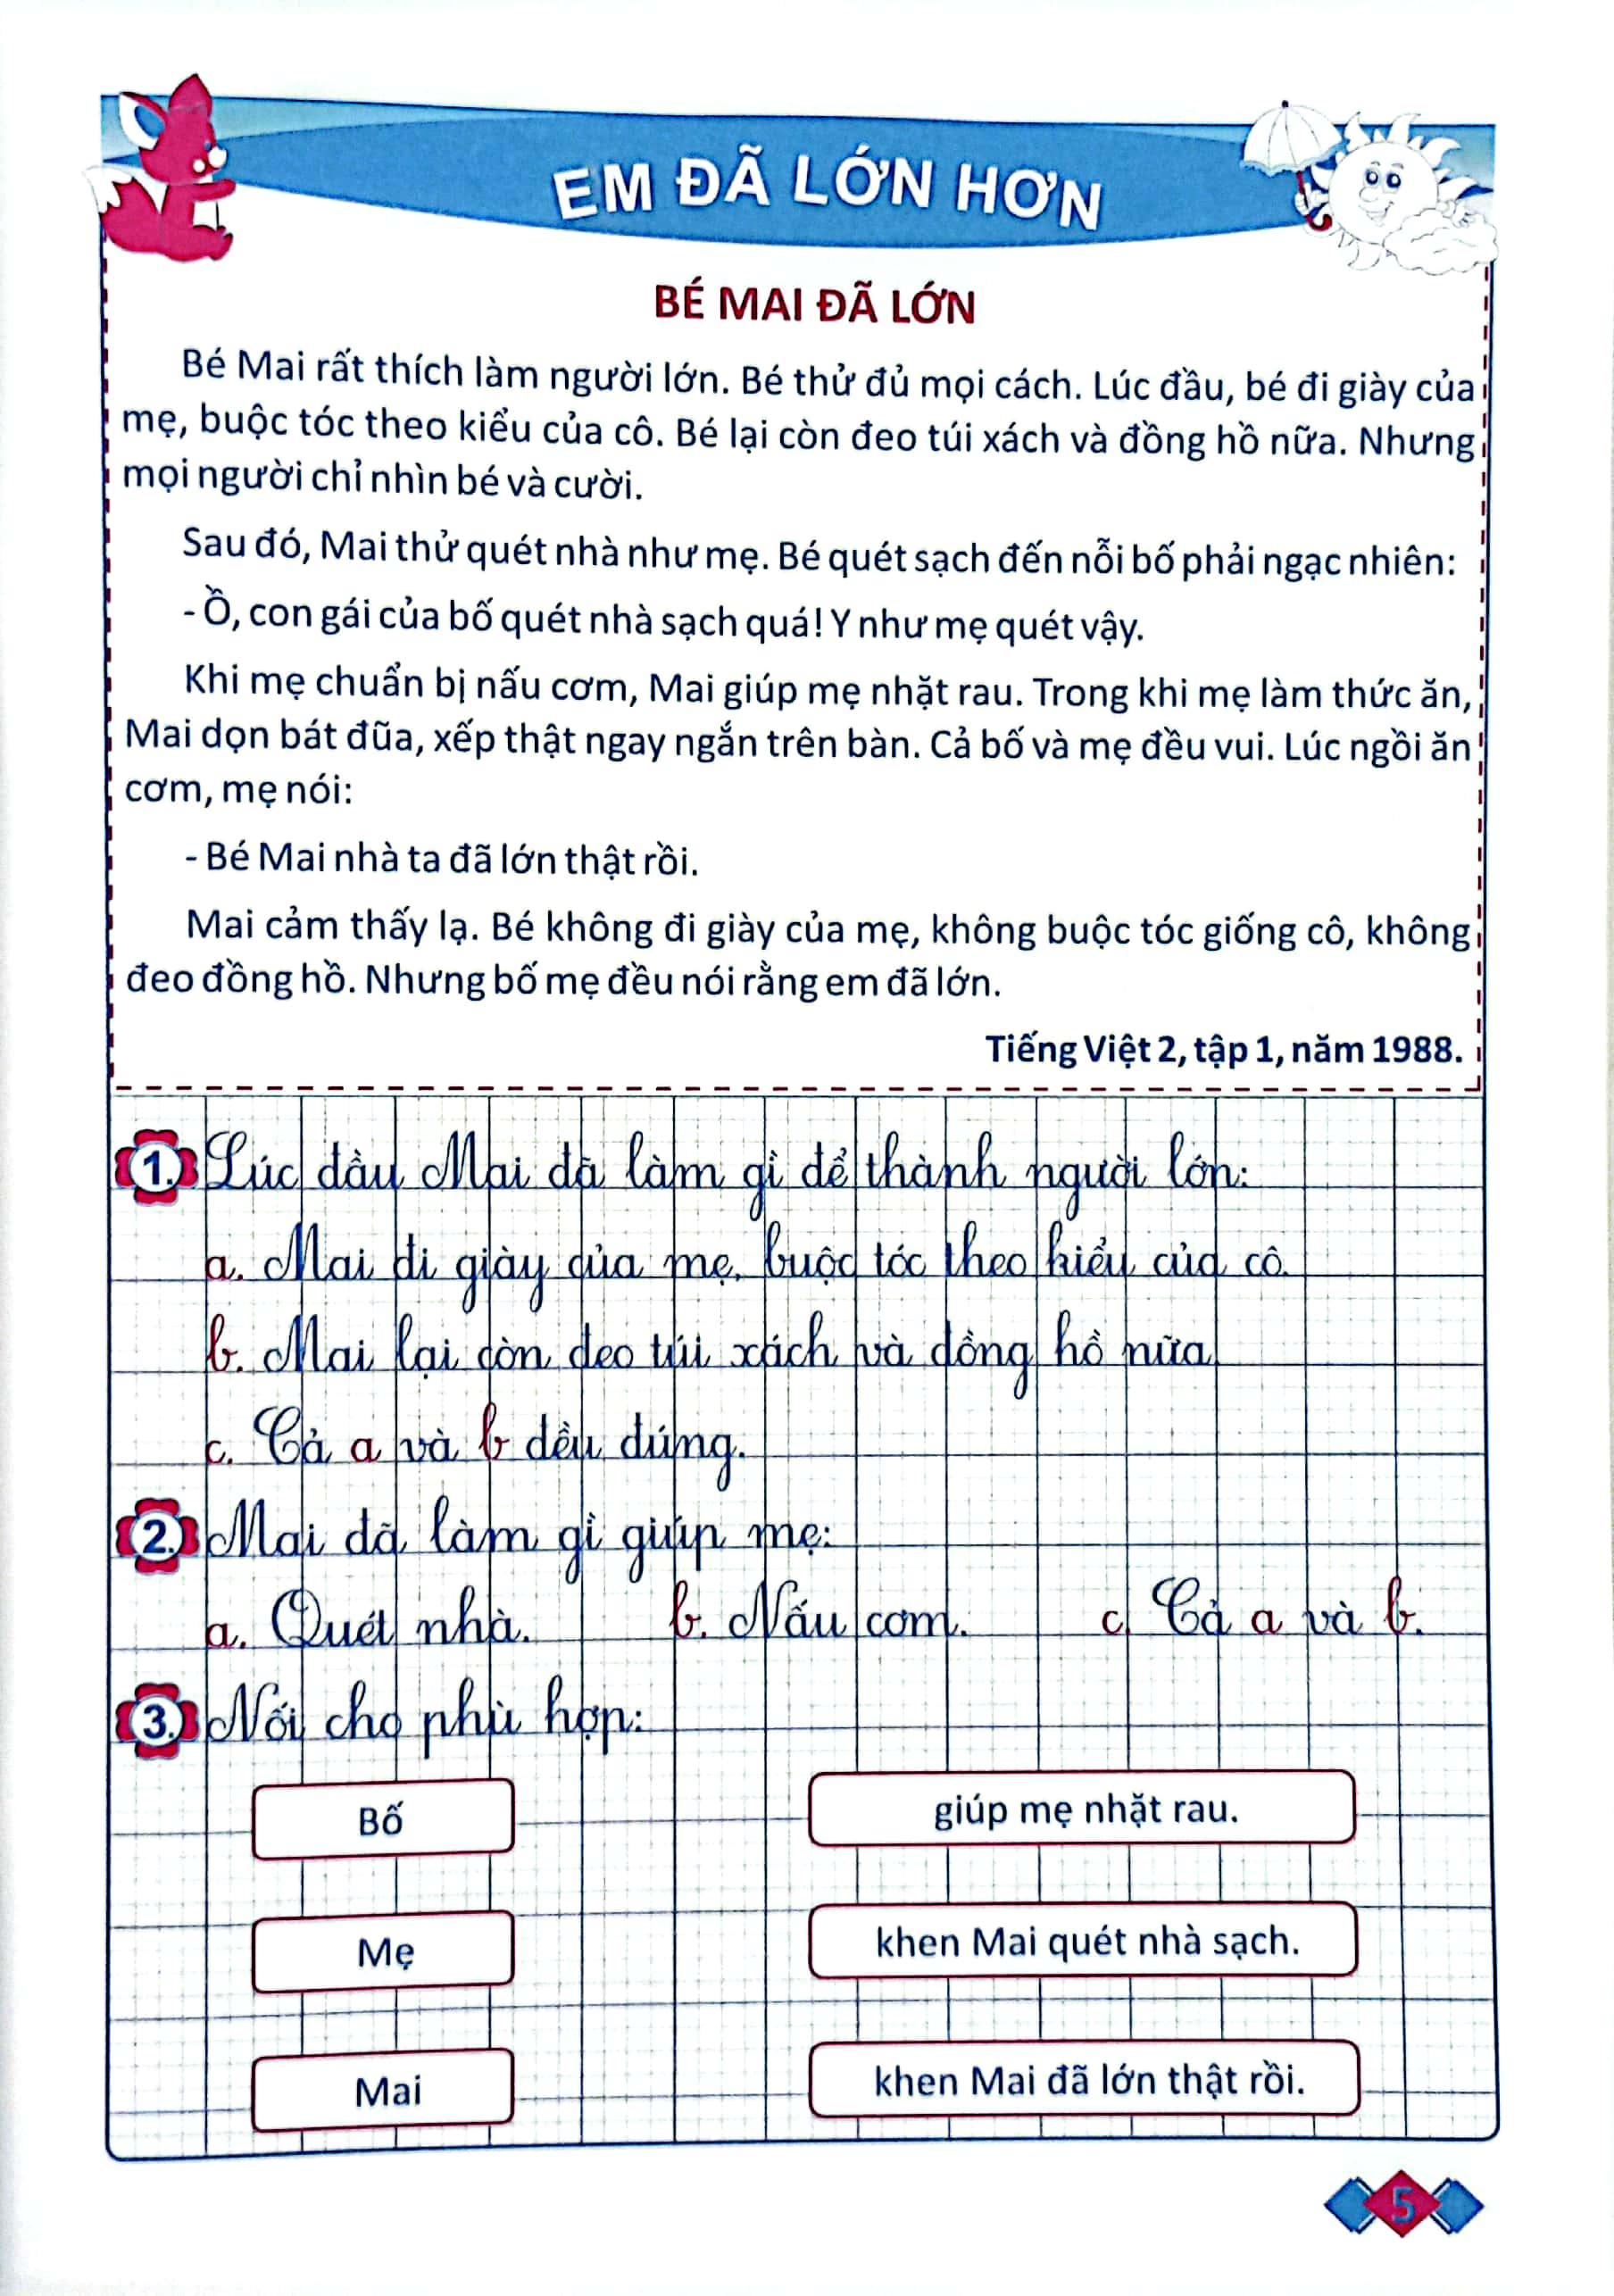 EM ĐÃ LỚN HƠN
BÉ MAI ĐÃ LỚN
Bé Mai rất thích làm người lớn. Bé thử đủ mọi cách. Lúc đầu, bé đi giày của
mẹ, buộc tóc theo kiểu của cô. Bé lại còn đeo túi xách và đồng hồ nữa. Nhưng
mọi người chỉ nhìn bé và cười.
Sau đó, Mai thử quét nhà như mẹ. Bé quét sạch đến nỗi bố phải ngạc nhiên:
- Ồ, con gái của bố quét nhà sạch quá! Y như mẹ quét vậy.
Khi mẹ chuẩn bị nấu cơm, Mai giúp mẹ nhặt rau. Trong khi mẹ làm thức ăn,
Mai dọn bát đũa, xếp thật ngay ngắn trên bàn. Cả bố và mẹ đều vui. Lúc ngồi ăn
cơm, mẹ nói:
- Bé Mai nhà ta đã lớn thật rồi.
Mai cảm thấy lạ. Bé không đi giày của mẹ, không buộc tóc giống cô, không
đeo đồng hồ. Nhưng bố mẹ đều nói rằng em đã lớn.
Tiếng Việt 2, tập 1, năm 1988.
1. Lúc đầu Mai đã làm gì để thành người lớn:
a. Mai đi giày của mẹ, buộc tóc theo kiểu của cô.
b. Mai lại còn đeo túi xách và đồng hồ nữa
c. Cả a và b đều đúng.
2. Mai đã làm gì giúp mẹ:
a. Quét nhà. b. Nấu cơm. c. Cả a và b.
3. Nối cho phù hợp:
Bố giúp mẹ nhặt rau.
Mẹ khen Mai quét nhà sạch.
Mai khen Mai đã lớn thật rồi.
5